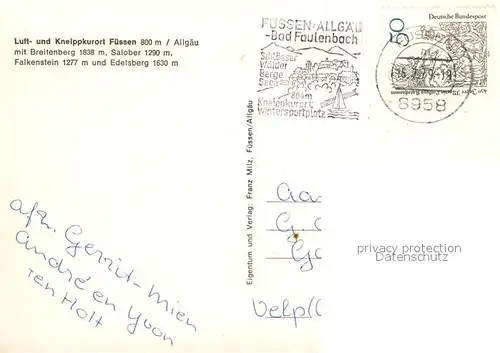 Luft- und Kneippkurort Füssen 800 m / Allgäu
mit Breitenberg 1838 m, Salober 1290 m,
Falkenstein 1277 m und Edelsberg 1630 m
FÜSSEN-ALLGÄU
-Bad Faulenbach
Schlösser
Wälder
Berge
Seen
804m
Kneippkurort
Wintersportplatz
50
Deutsche Bundespost
8958
Eigentum und Verlag: Franz Milz, Füssen/Allgäu
afz. Gerrit-Mien
André en Yvon
ten Holt
Aa
G.
Ga
Velp
privacy protection
Datenschutz